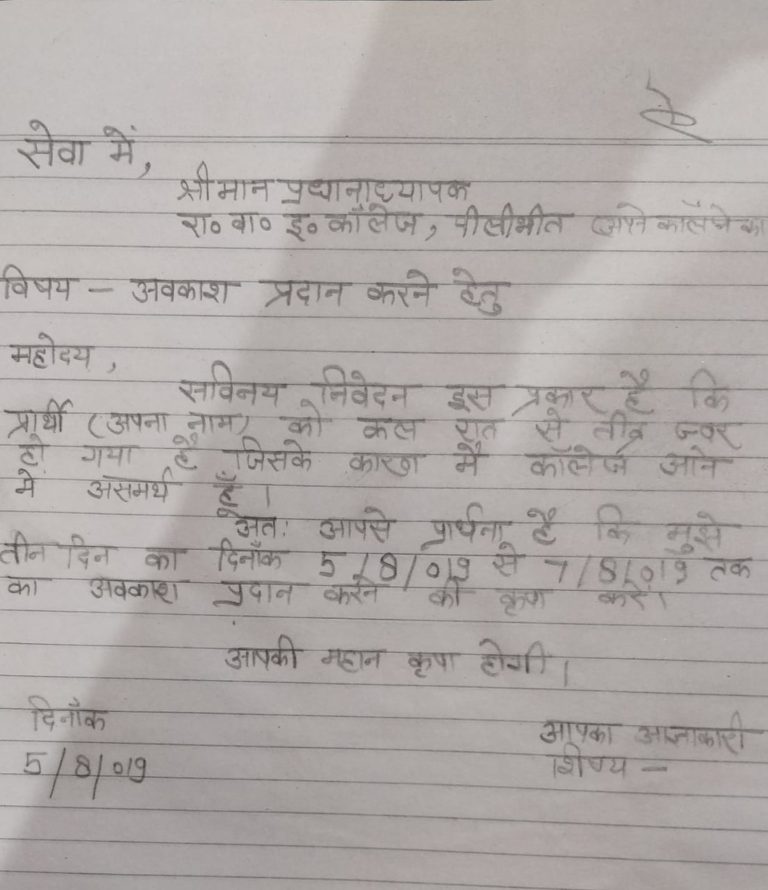 सेवा में,
श्रीमान प्रधानाध्यापक
रा० बा० इ० कॉलेज, पीलीभीत (अपने कॉलेज का
विषय - अवकाश प्रदान करने हेतु
महोदय,
सविनय निवेदन इस प्रकार है कि
प्रार्थी (अपना नाम) को कल रात से तीव्र ज्वर
हो गया है जिसके कारण मैं कॉलेज आने
में असमर्थ हूँ।
अतः आपसे प्रार्थना है कि मुझे
तीन दिन का दिनाँक 5/8/019 से 7/8/019 तक
का अवकाश प्रदान करने की कृपा करें।
आपकी महान कृपा होगी।
दिनाँक
5/8/019
आपका आज्ञाकारी
शिष्य -